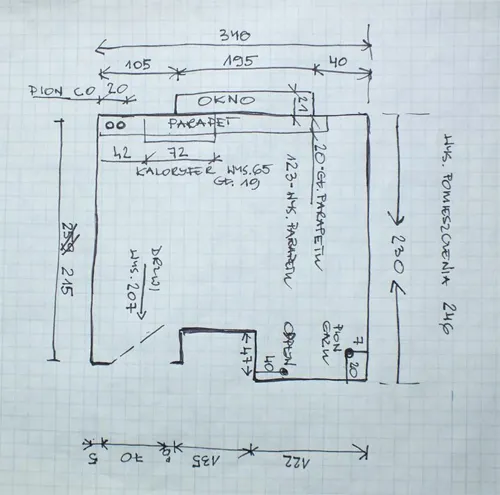 340
105 195 40
PION CO 20
OKNO 21
PARAPET
42 72
KALORYFER WYS.65
GŁ.19
123-WYS. PARAPETU
20-GŁ. PARAPETU
WYS. POMIESZCZENIA 246
215
230
DRZWI
WYS. 207
47
40
ODPŁYW
PION
GAZU
7
20
5 70 135 122